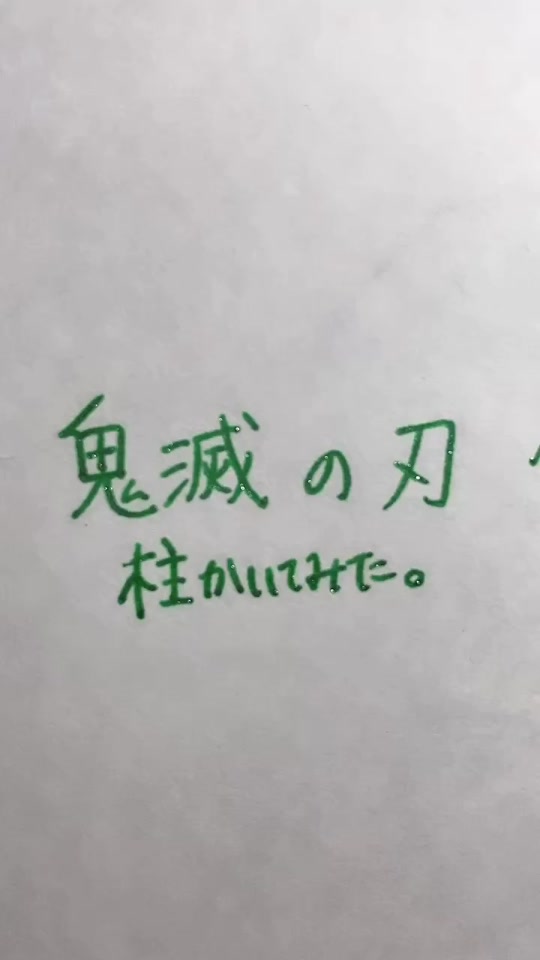 鬼滅の刃
柱かいてみた。